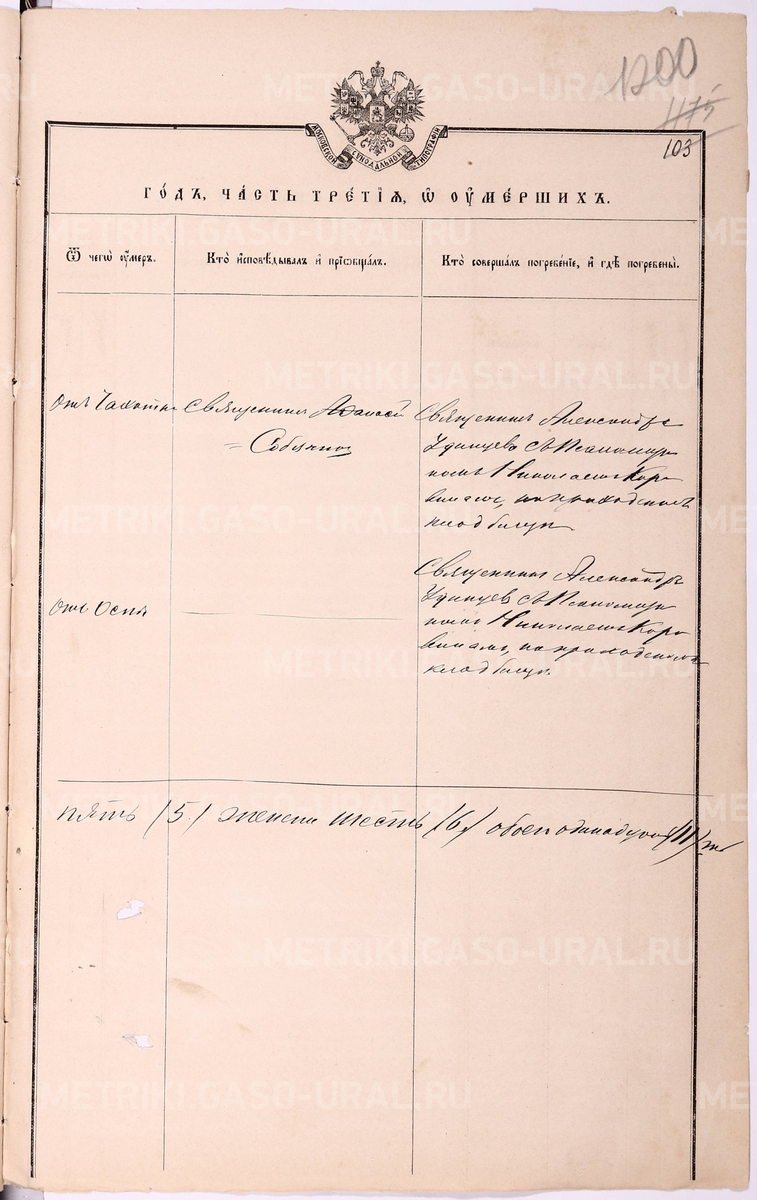 1200
1175
103
МОСКОВСКОЙ СѴНОДАЛЬНОЙ ТИПОГРАФІИ
ГО́ДЪ, ЧА́СТЬ ТРЕ́ТІѦ, Ѡ҆ ОУ҆МЕ́РШИХЪ.
Ѿ чегѡ̀ оу҆́меръ.
Кто̀ и҆сповѣ́дывалъ и҆ прїѡбща́лъ.
Кто̀ соверша́лъ погребе́нїе, и҆ гдѣ̀ погребены̀.
Отъ Чахотки
Священникъ
Собянинъ
Священникъ Александръ
Удинцевъ съ Псаломщи
комъ Николаемъ Коро
винымъ, на приходскомъ
кладбищѣ
Отъ Оспы
Священникъ Александръ
Удинцевъ съ Псаломщи
комъ Николаемъ Коро
винымъ, на приходскомъ
кладбищѣ.
пять (5) женска шесть (6) обоего одинадцать (11)
METRIKI.GASO-URAL.RU